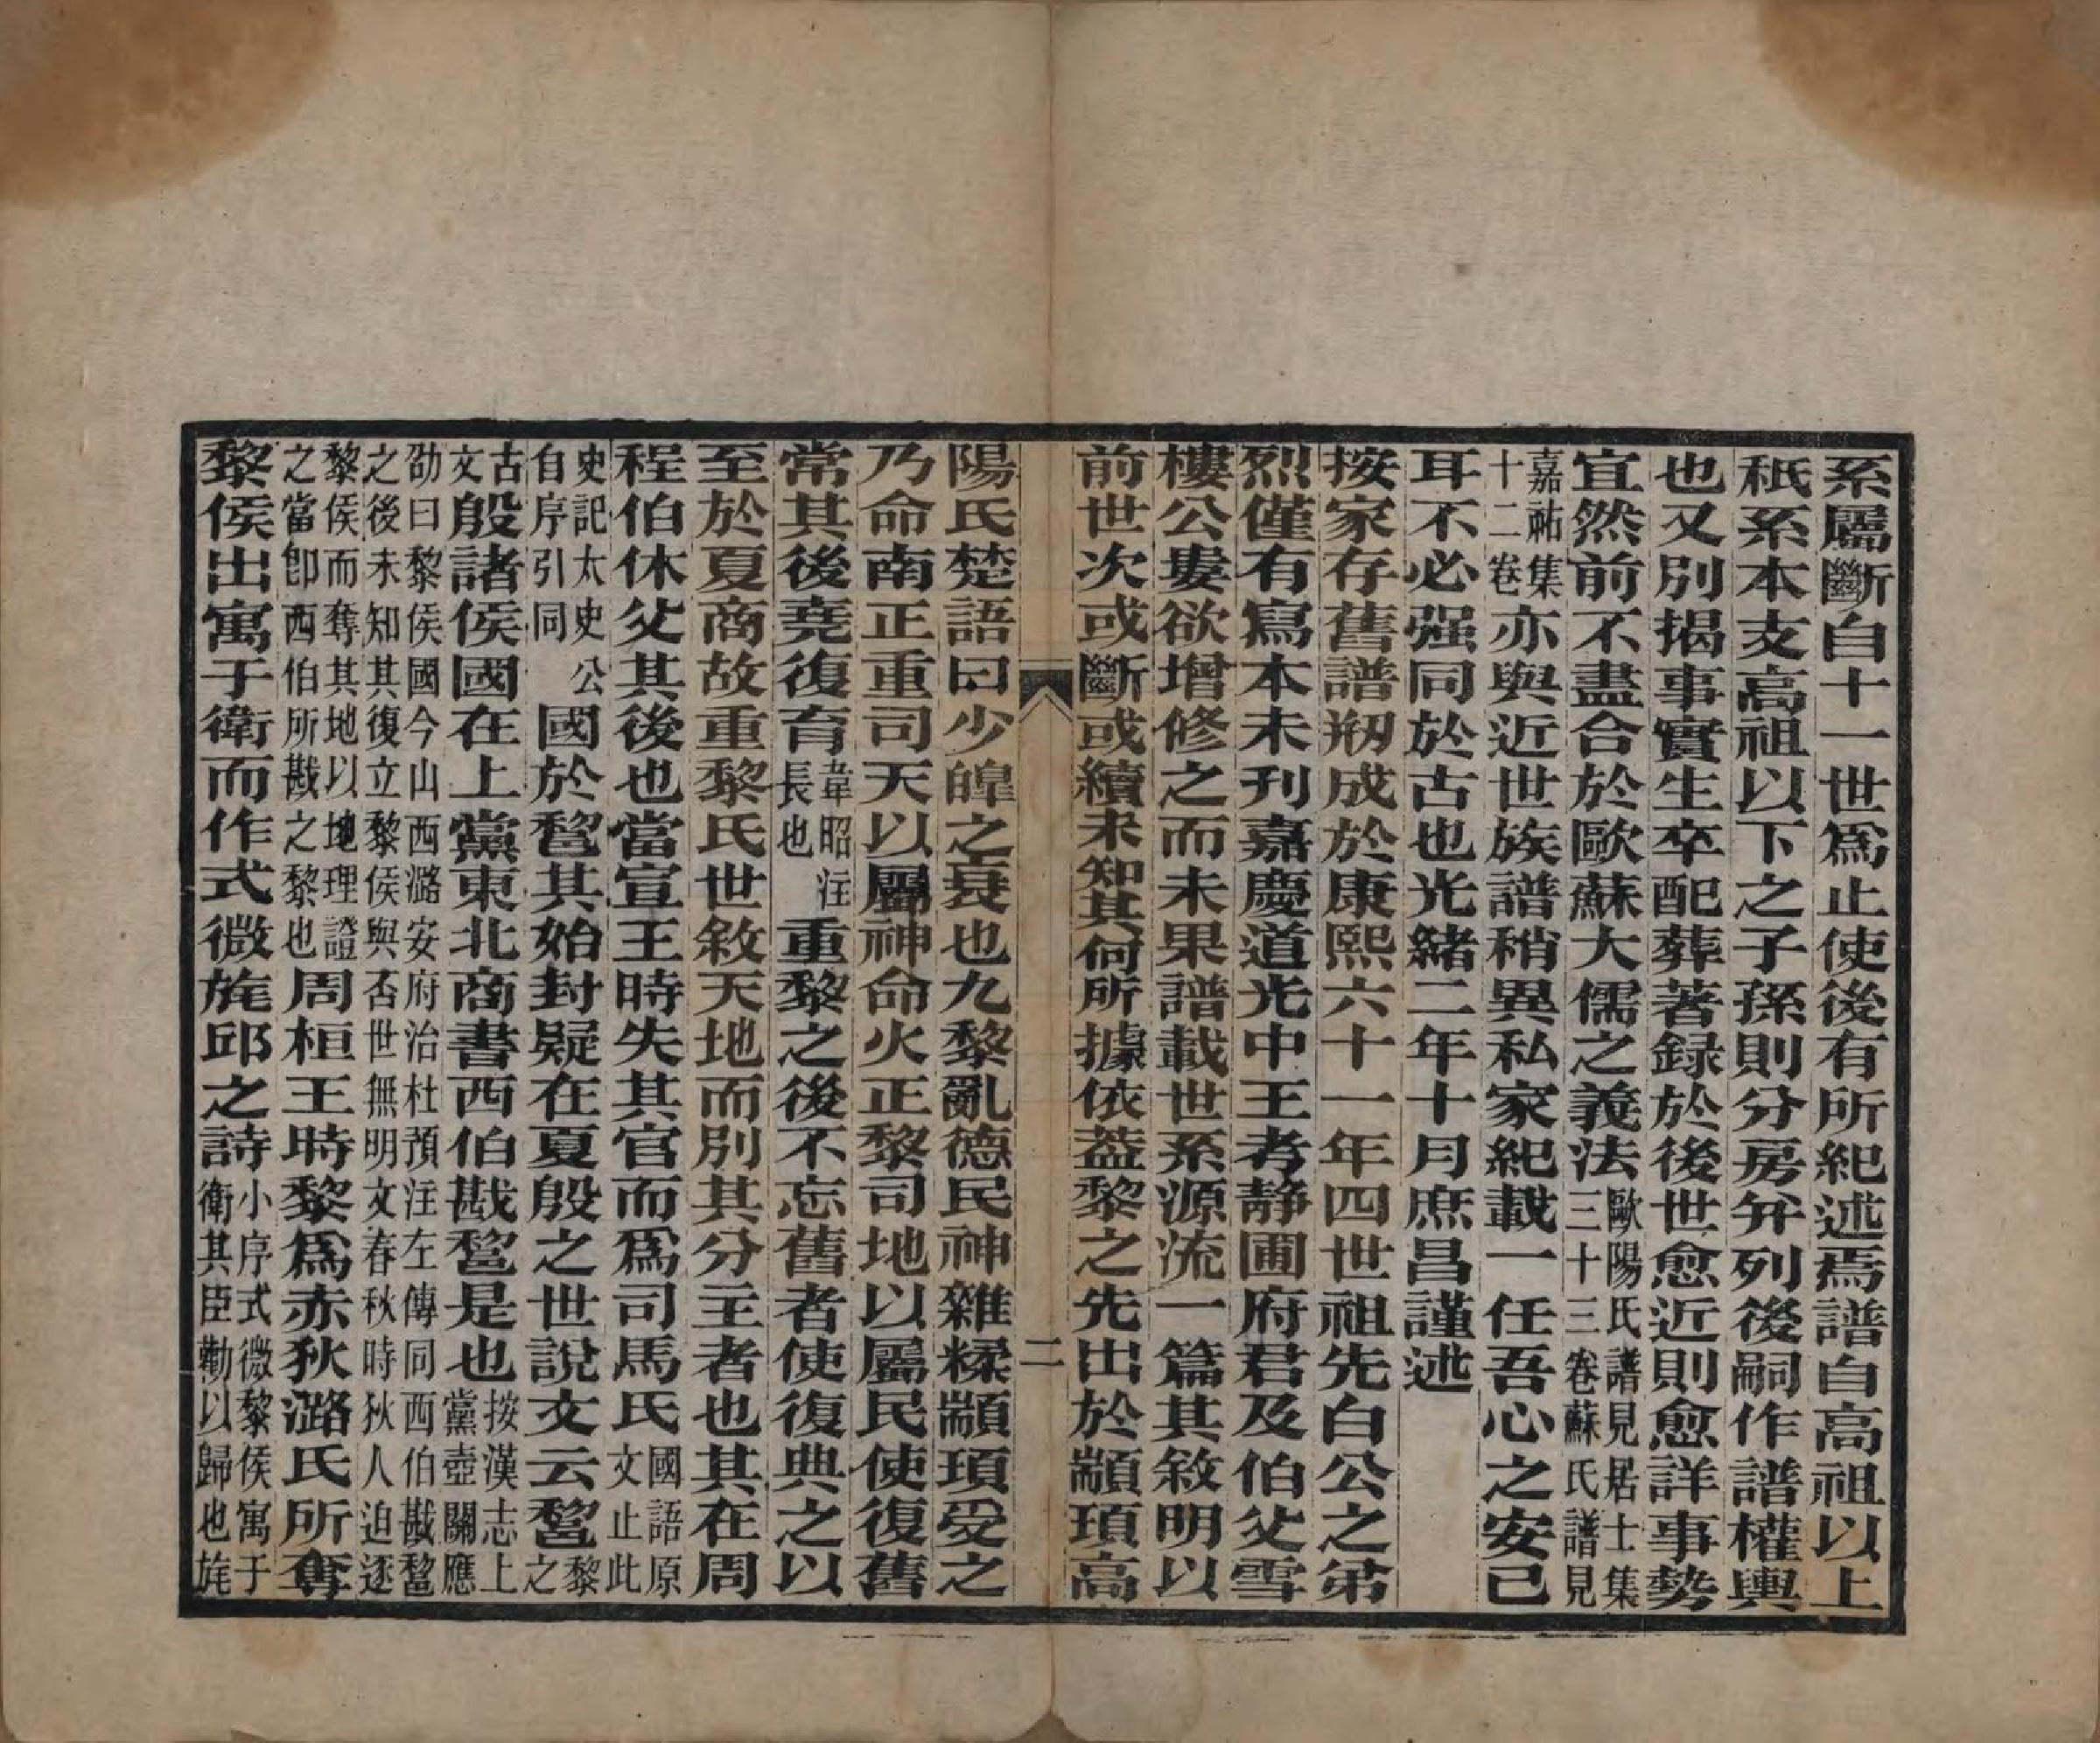 系屬斷自十一世爲止使後有所紀述焉譜自高祖以上
秖系本支高祖以下之子孫則分房幷列後嗣作譜權輿
也又別揭事實生卒配葬著録於後世愈近則愈詳事勢
宜然前不盡合於歐蘇大儒之義法歐陽氏譜見居士集三十三卷蘇氏譜見
嘉祐集十二卷亦與近世族譜稍異私家紀載一任吾心之安已
耳不必强同於古也光緒二年十月庶昌謹述
按家存舊譜剏成於康熙六十一年四世祖先白公之第
烈僅有寫本未刊嘉慶道光中王考靜圃府君及伯父雪
樓公婁欲增修之而未果譜載世系源流一篇其敘明以
前世次或斷或續未知其何所據依葢黎之先出於顓頊高
二
陽氏楚語曰少皥之衰也九黎亂德民神雜糅顓頊受之
乃命南正重司天以屬神命火正黎司地以屬民使復舊
常其後堯復育韋昭注長也重黎之後不忘舊者使復典之以
至於夏商故重黎氏世敘天地而別其分主者也其在周
程伯休父其後也當宣王時失其官而爲司馬氏國語原文止此
史記太史公自序引同國於䣓其始封疑在夏殷之世說文云䣓黎之
古文殷諸侯國在上黨東北商書西伯戡䣓是也按漢志上黨壺關應
劭曰黎侯國今山西潞安府治杜預注左傳同西伯戡䣓之後未知其復立黎侯與否世無明文春秋時狄人迫逐
黎侯而奪其地以地理證之當卽西伯所戡之黎也周桓王時黎爲赤狄潞氏所奪
黎侯出寓于衛而作式微旄邱之詩小序式微黎侯寓于衛其臣勸以歸也旄